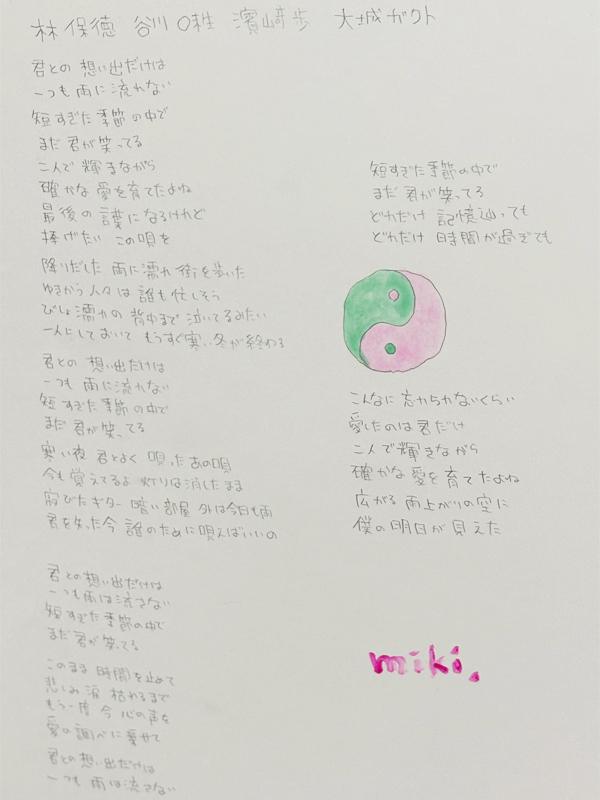 林保徳 谷川〇牲 濱﨑歩 大城ガクト
君との想い出だけは
一つも雨に流れない
短すぎた季節の中で
まだ君が笑ってる
二人で輝きながら
確かな愛を育てたよね
最後の言葉になるけれど
捧げたい この唄を
降りだした雨に濡れ街を歩いた
ゆきかう人々は誰も忙しそう
びしょ濡れの背中まで泣いてるみたい
一人にしておいて もうすぐ寒い冬が終わる
君との想い出だけは
一つも雨に流れない
短すぎた季節の中で
まだ君が笑ってる
寒い夜 君とよく唄ったあの唄
今も覚えてるよ 灯りは消したまま
窮びたギター 暗い部屋 外は今日も雨
君を失った今 誰のために唄えばいいの
君との想い出だけは
一つも雨は流さない
短すぎた季節の中で
まだ君が笑ってる
このまま時間を止めて
悲しみ涙枯れるまで
もう一度今心の声を
愛の調べに乗せて
君との想い出だけは
一つも雨は流さない
短すぎた季節の中で
まだ君が笑ってる
どれだけ記憶辿っても
どれだけ時間が過ぎても
こんなに忘れられないくらい
愛したのは君だけ
二人で輝きながら
確かな愛を育てたよね
広がる雨上がりの空に
僕の明日が見えた
miki.